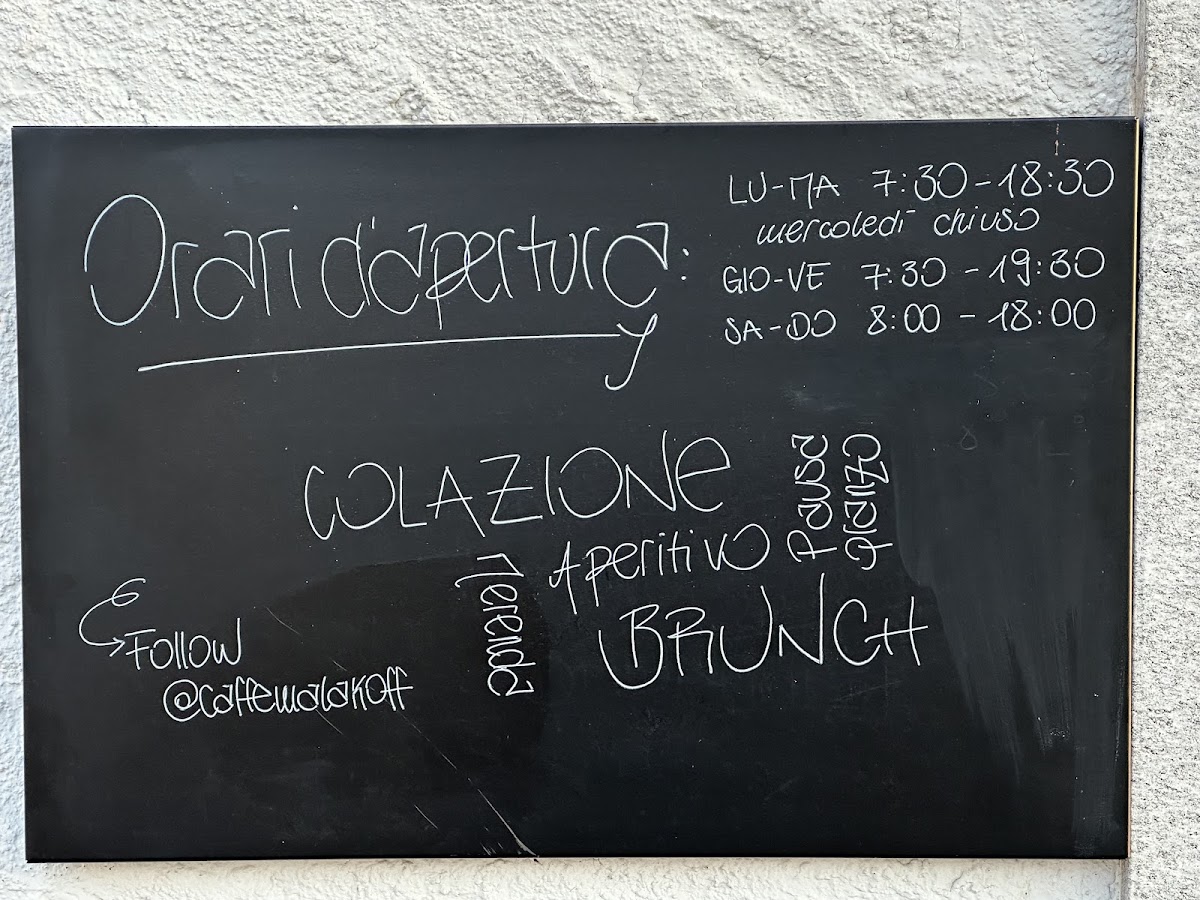 Orari d'apertura:
LU-MA 7:30-18:30
mercoledì chiuso
GIO-VE 7:30-19:30
SA-DO 8:00-18:00
COLAZIONE
Pausa
pranzo
Aperitivo
Merenda
BRUNCH
Follow
@caffemalakoff